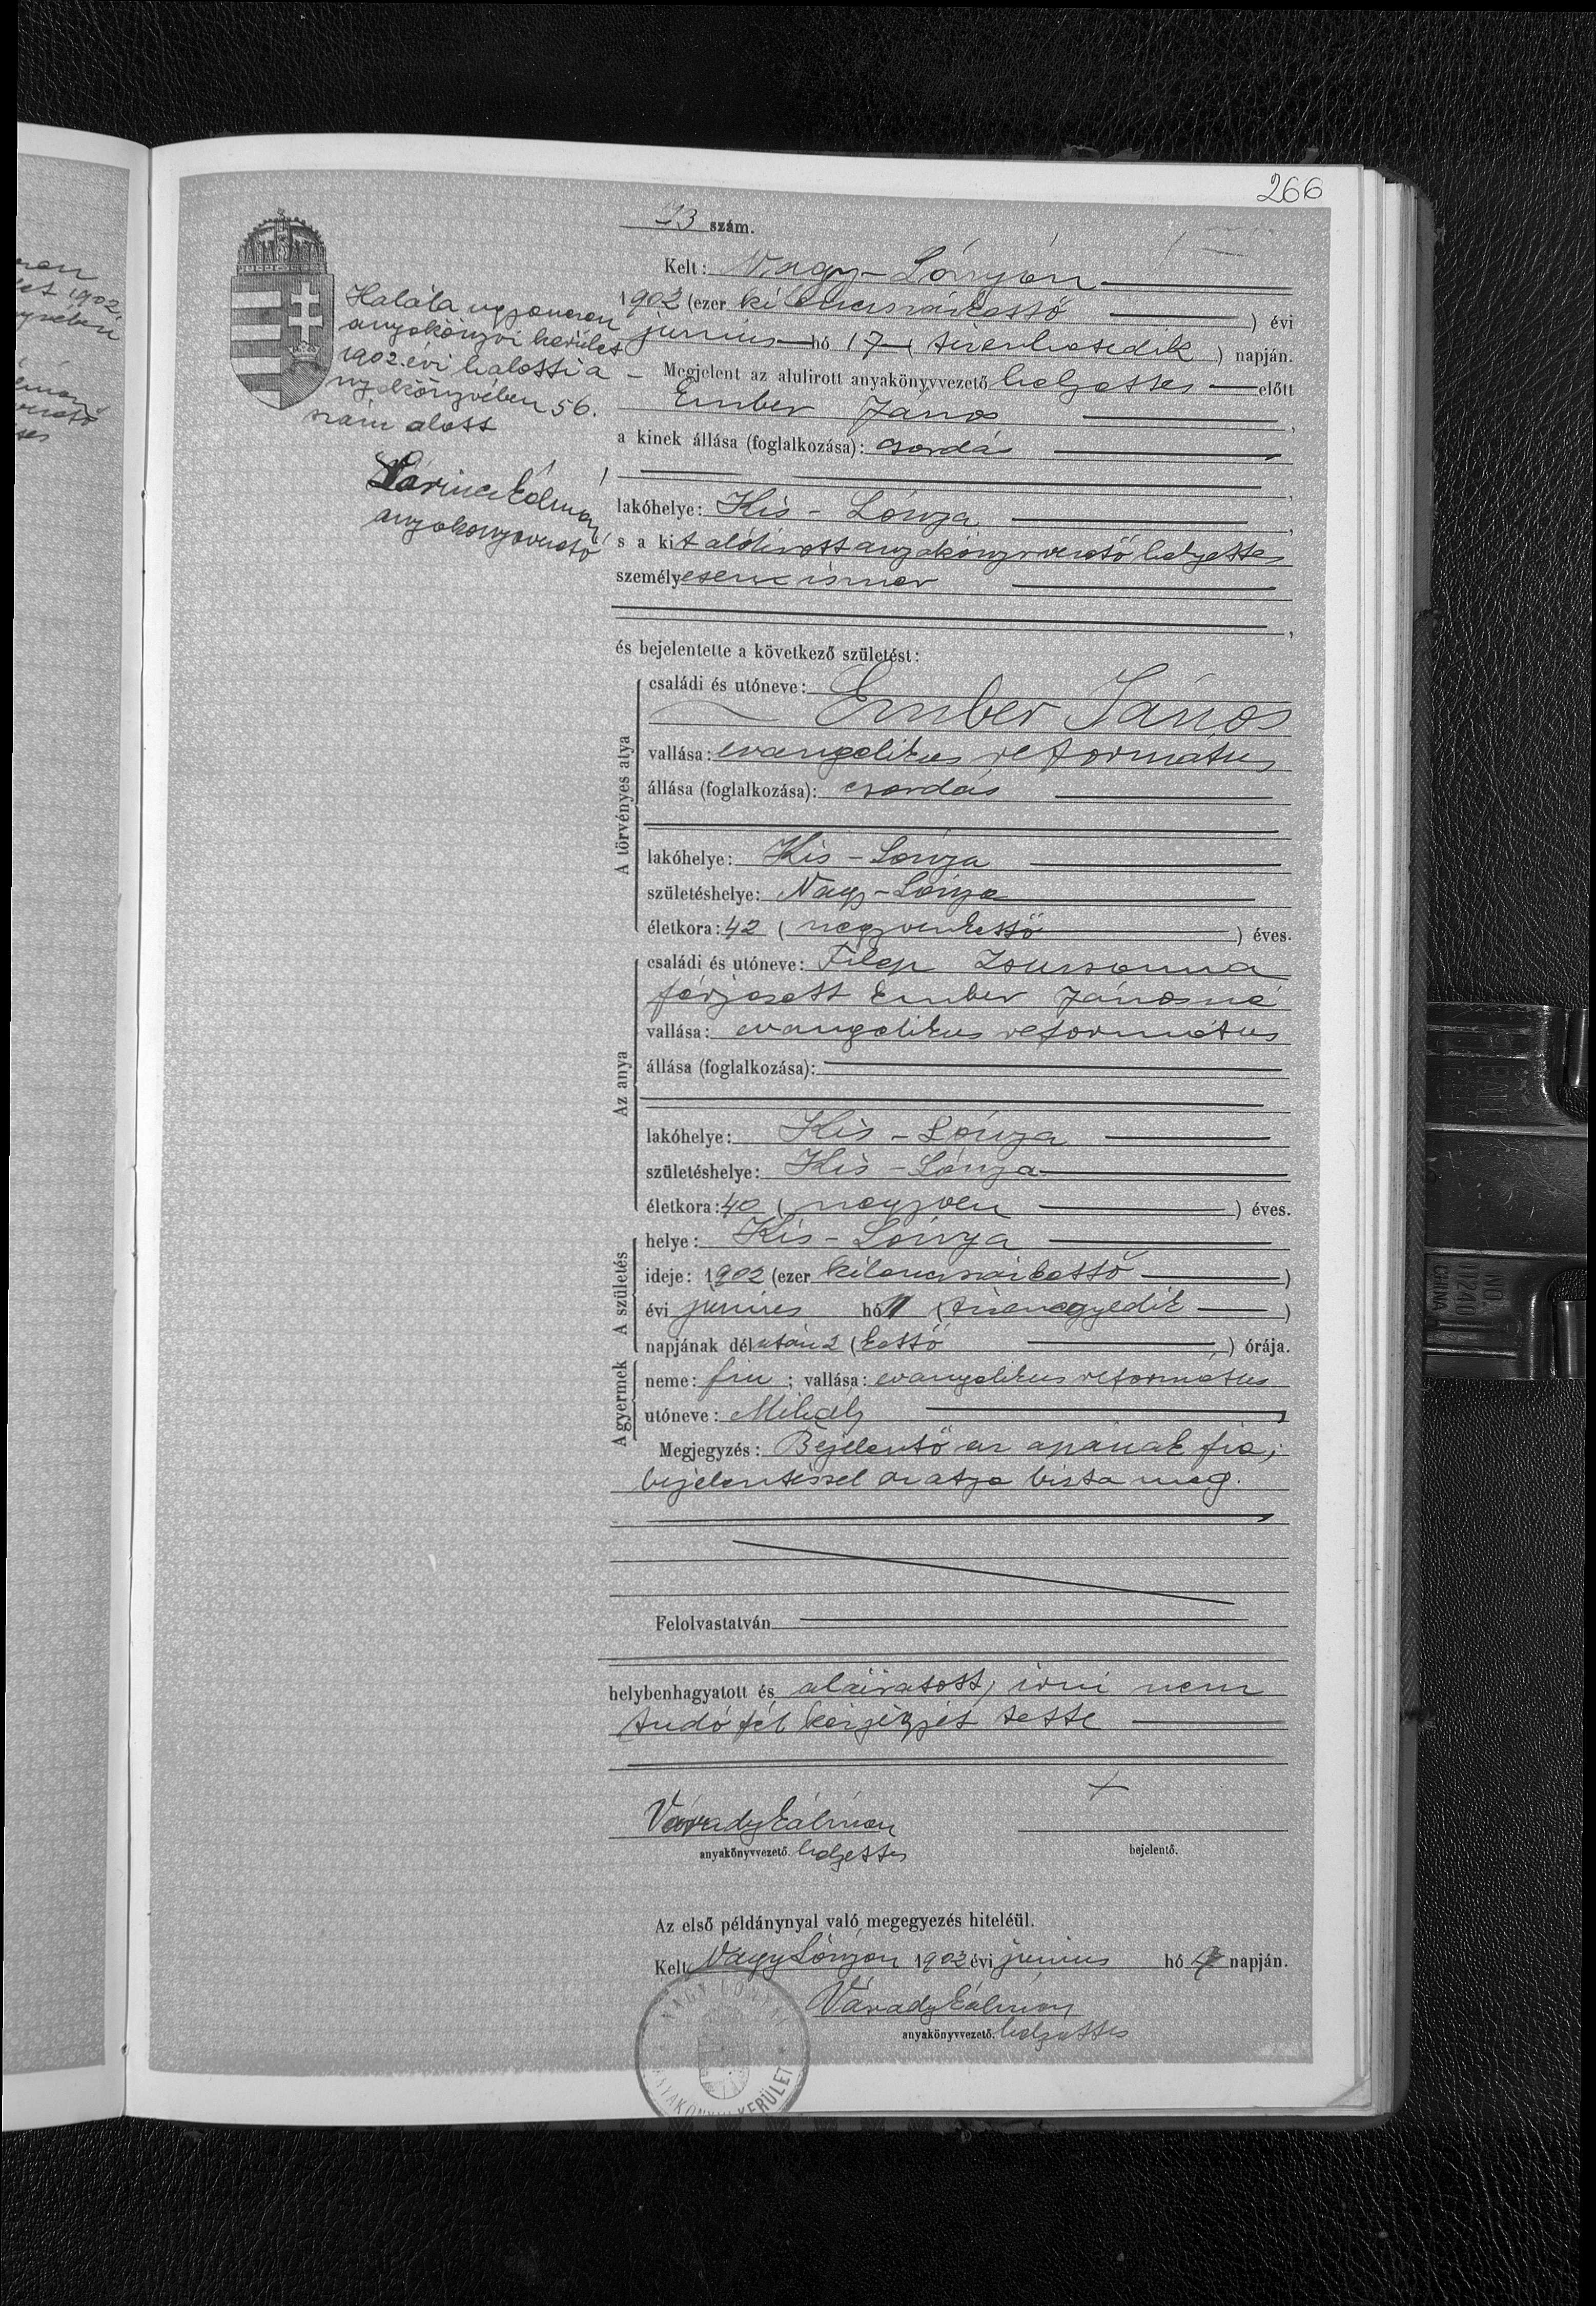 266
73 szám.
Kelt: Nagy-Lónyán
1902 (ezer kilenczszázkettő) évi
junius hó 17 (tizenhetedik) napján.
Megjelent az alulirott anyakönyvvezető helyettes előtt
Ember János,
a kinek állása (foglalkozása): csordás
lakóhelye: Kis-Lónya,
s a kit alólirott anyakönyvvezető helyettes
személyesen ismer,
és bejelentette a következő születést:
A törvényes atya
családi és utóneve:
Ember János
vallása: evangelikus református
állása (foglalkozása): csordás
lakóhelye: Kis-Lónya
születéshelye: Nagy-Lónya
életkora: 42 (negyvenkettő) éves.
Az anya
családi és utóneve: Filep Zsuzsanna
férjezett Ember Jánosné
vallása: evangelikus református
állása (foglalkozása):
lakóhelye: Kis-Lónya
születéshelye: Kis-Lónya
életkora: 40 (negyven) éves.
A születés
helye: Kis-Lónya
ideje: 1902 (ezer kilenczszázkettő)
évi junius hó 11 (tizenegyedik)
napjának délután 2 (kettő) órája.
A gyermek
neme: fiu; vallása: evangelikus református
utóneve: Mihály
Megjegyzés: Bejelentő az apának fia;
bejelentéssel az atya bizta meg.
Felolvastatván
helybenhagyatott és aláiratott, irni nem
tudó fél kézjegyét tette
+
Várady Kálmán
anyakönyvvezető helyettes
bejelentő.
Az első példánynyal való megegyezés hiteléül.
Kelt Nagy Lónyán 1902 évi junius hó 17 napján.
Várady Kálmán
anyakönyvvezető. helyettes
NAGY LÓNYAI ANYAKÖNYVI KERÜLET
Halála ugyanezen
anyakönyvi kerület
1902. évi halotti a
nyakönyvében 56.
szám alatt
Kálmán
anyakönyvvezető